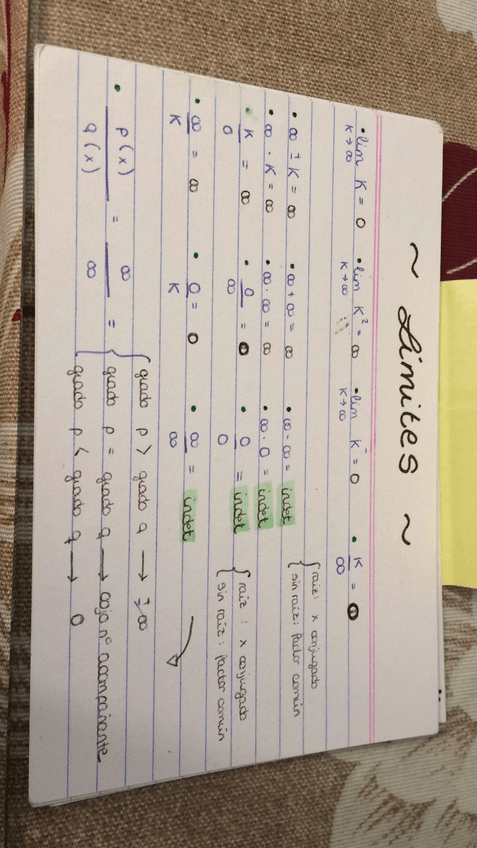 ~ Limites ~
• lim K = 0 • lim K² = ∞ • lim K⁻ = 0 • K/∞ = 0
K→∞ K→∞ K→∞
• ∞ ± K = ∞ • ∞ + ∞ = ∞ • ∞ - ∞ = indet { raiz: x conjugado
sin raiz: factor común
• ∞ · K = ∞ • ∞ · ∞ = ∞ • ∞ · 0 = indet
• K/0 = ∞ • 0/∞ = 0 • 0/0 = indet { raiz : x conjugado
sin raiz: factor común
• ∞/K = ∞ • 0/K = 0 • ∞/∞ = indet
• p(x)/q(x) = ∞/∞ = { grado p > grado q → ±∞
grado p = grado q → coja nº acompañante
grado p < grado q → 0